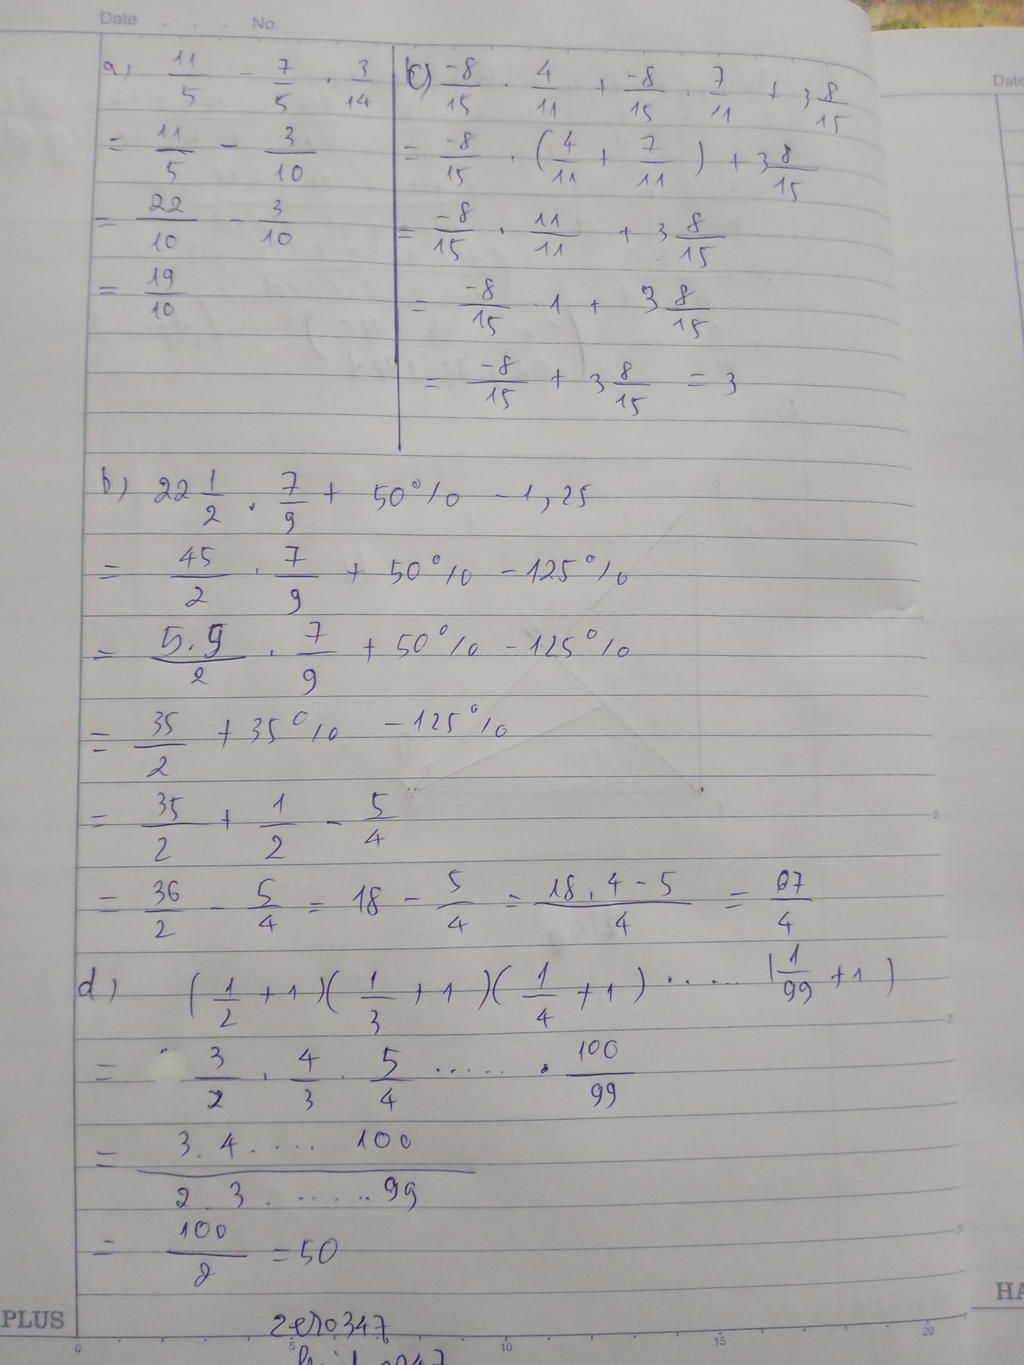 Date . . . . No.
a) 11/5 - 7/5 . 3/14
= 11/5 - 3/10
= 22/10 - 3/10
= 19/10
c) -8/15 . 4/11 + -8/15 . 7/11 + 3 8/15
= -8/15 . (4/11 + 7/11) + 3 8/15
= -8/15 . 11/11 + 3 8/15
= -8/15 . 1 + 3 8/15
= -8/15 + 3 8/15 = 3
b) 22 1/2 . 7/9 + 50% - 1,25
= 45/2 . 7/9 + 50% - 125%
= 5.9/2 . 7/9 + 50% - 125%
= 35/2 + 35% - 125%
= 35/2 + 1/2 - 5/4
= 36/2 - 5/4 = 18 - 5/4 = 18.4-5/4 = 67/4
d) (1/2 + 1)(1/3 + 1)(1/4 + 1) ..... (1/99 + 1)
= 3/2 . 4/3 . 5/4 ..... . 100/99
= 3.4..... 100/2.3......99
= 100/2 = 50
zero347
PLUS
0 5 10 15 20
Date
HA